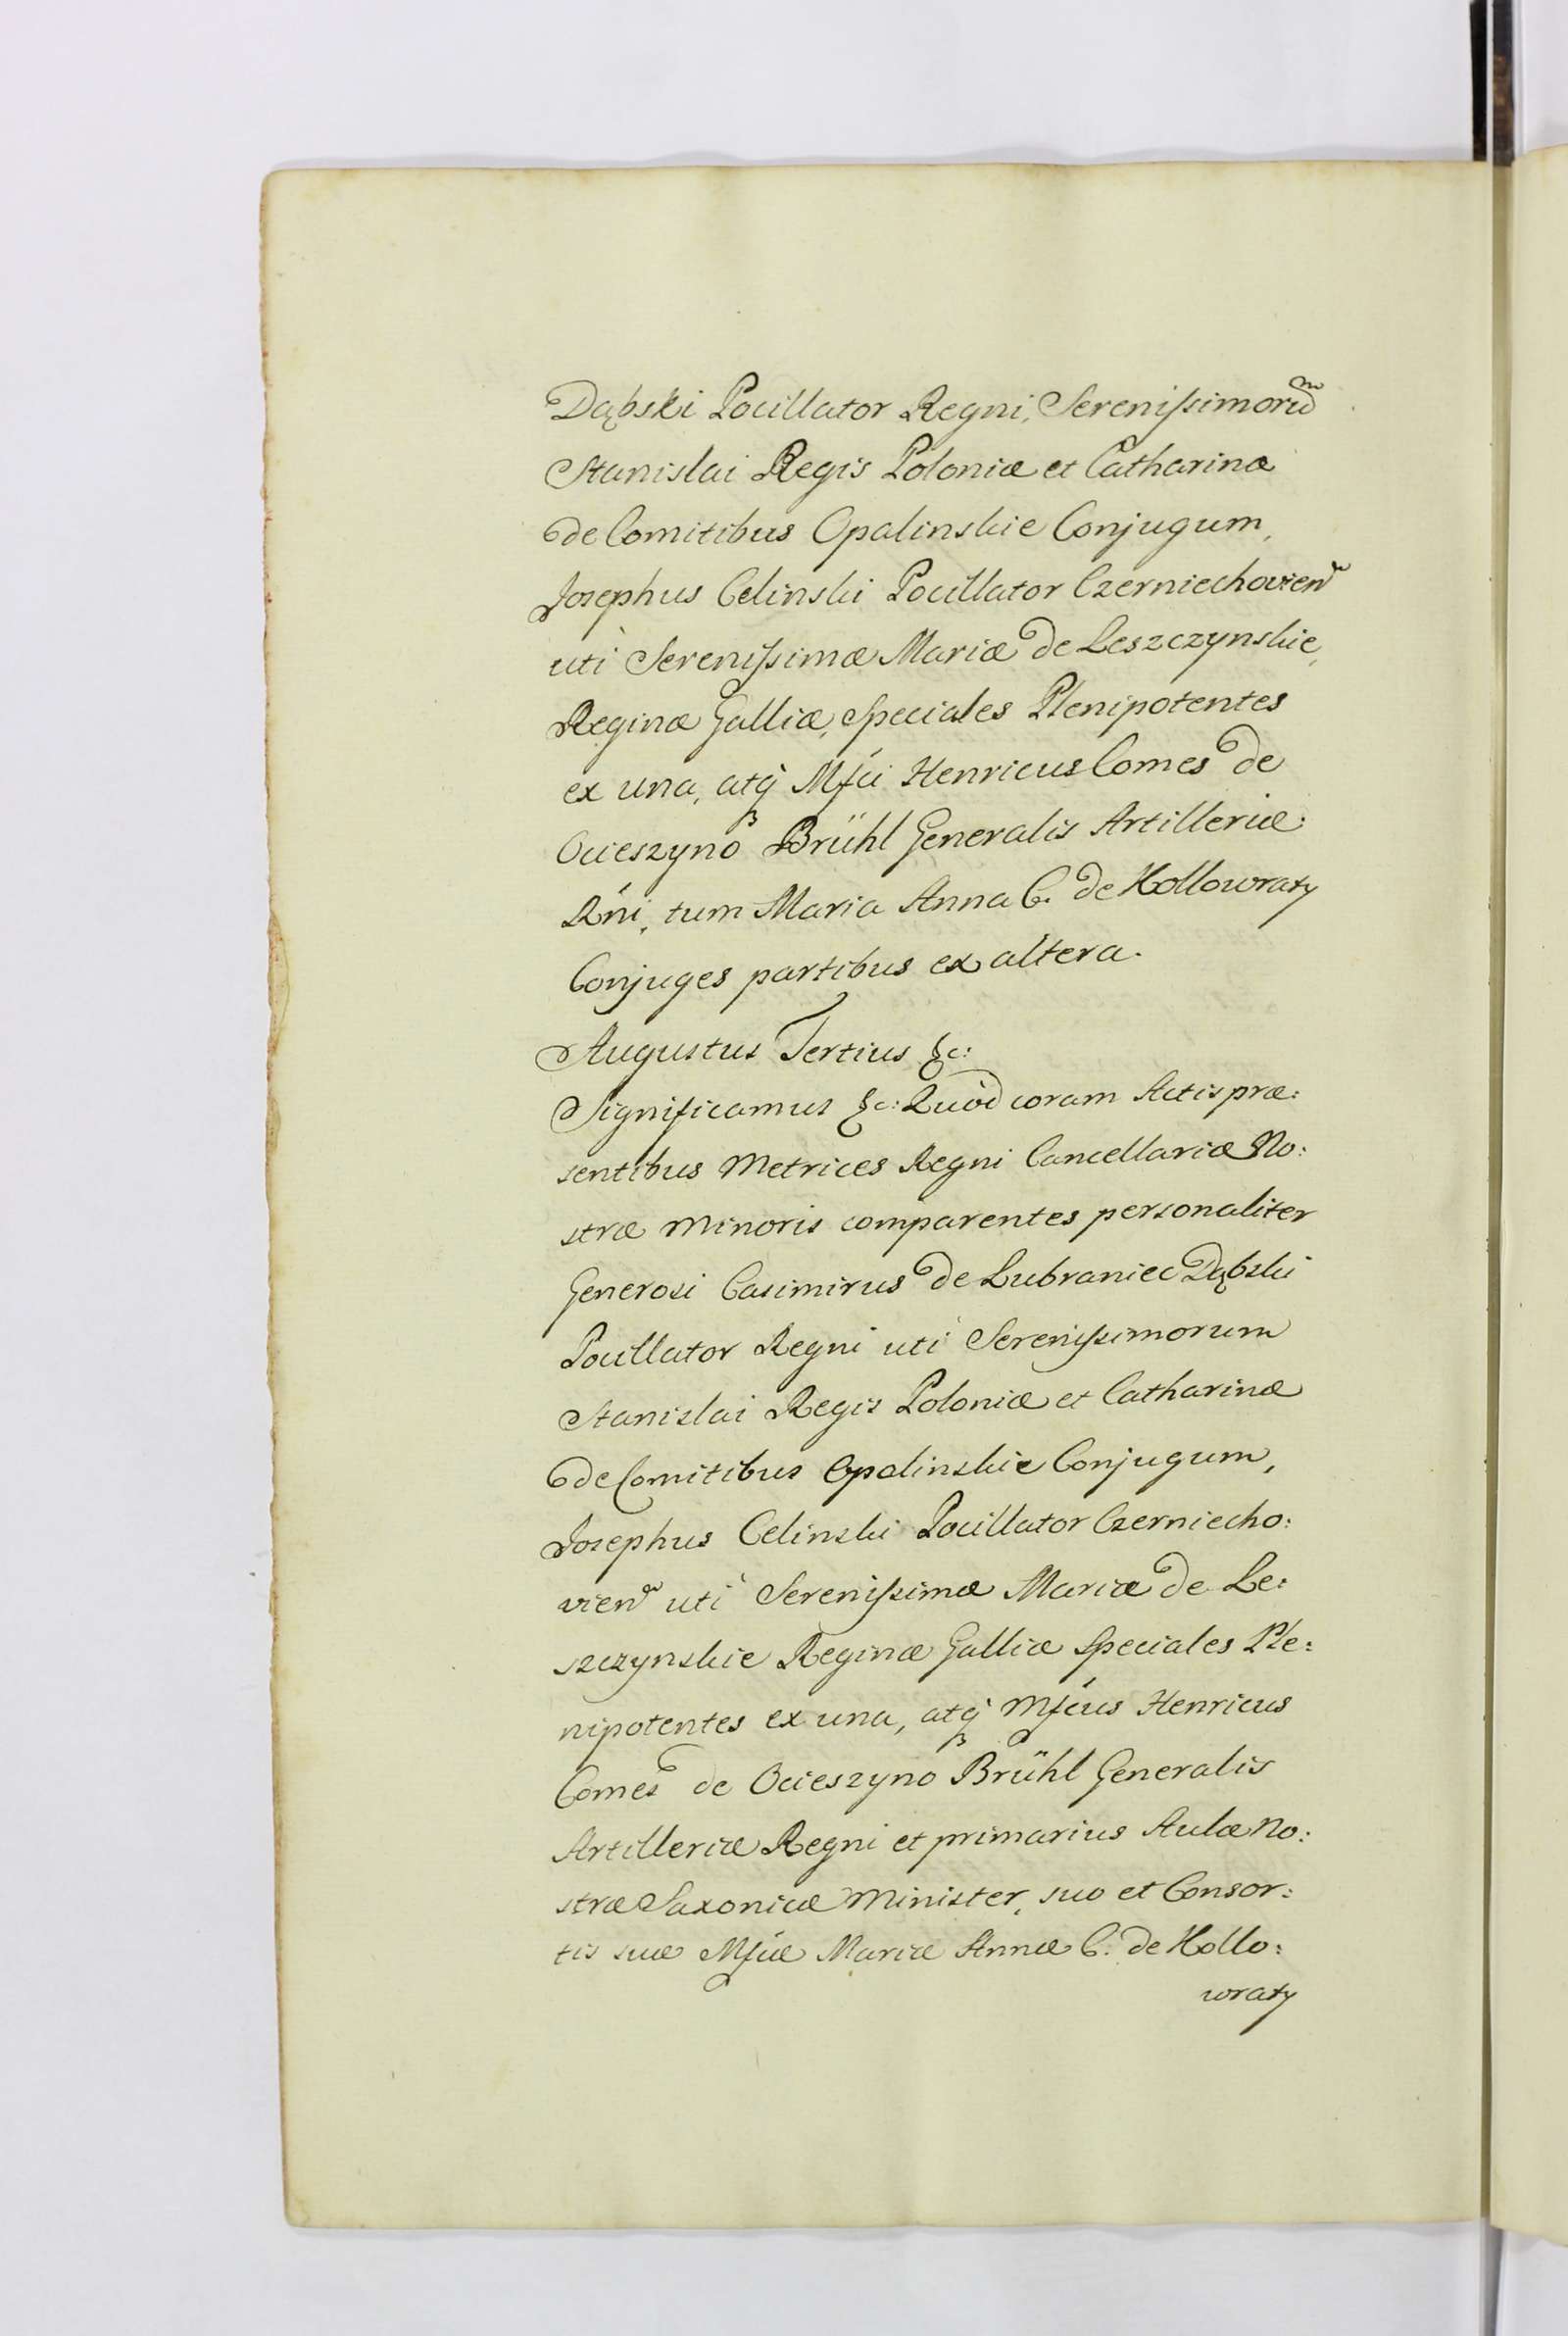 Dąbski Pocillator Regni, Serenissimorũ
Stanislai Regis Poloniæ et Catharinæ
de Comitibus Opalinskie Conjugum,
Josephus Celinski Pocillator Czerniechovien
uti Serenissimæ Mariæ de Leszczynskie,
Reginæ Galliæ, Speciales Plenipotentes
ex una, atq̀ Mfci Henricus Comes de
Ocieszyno Brühl Generalis Artilleriæ
Rńi, tum Maria Anna C. de Kollowraty
Conjuges partibus ex altera.
Augustus Tertius &c:
Significamus &c: Quòd coram Actis præ:
sentibus Metrices Regni Cancellariæ No:
stræ Minoris comparentes personaliter
Generosi Casimirus de Lubraniec Dąbski
Pocillator Regni uti Serenissimorum
Stanislai Regis Poloniæ et Catharinæ
de Comitibus Opalinskie Conjugum,
Josephus Celinski Pocillator Czerniecho:
vien uti Serenissimæ Mariæ de Le:
szczynskie Reginæ Galliæ Speciales Ple:
nipotentes ex una, atq̀ Mfcus Henricus
Comes de Ocieszyno Brühl Generalis
Artilleriæ Regni et primarius Aulæ No:
stræ Saxonicæ Minister, suo et Consor:
tis suæ Mfcæ Mariæ Annæ C. de Kollo:
wraty